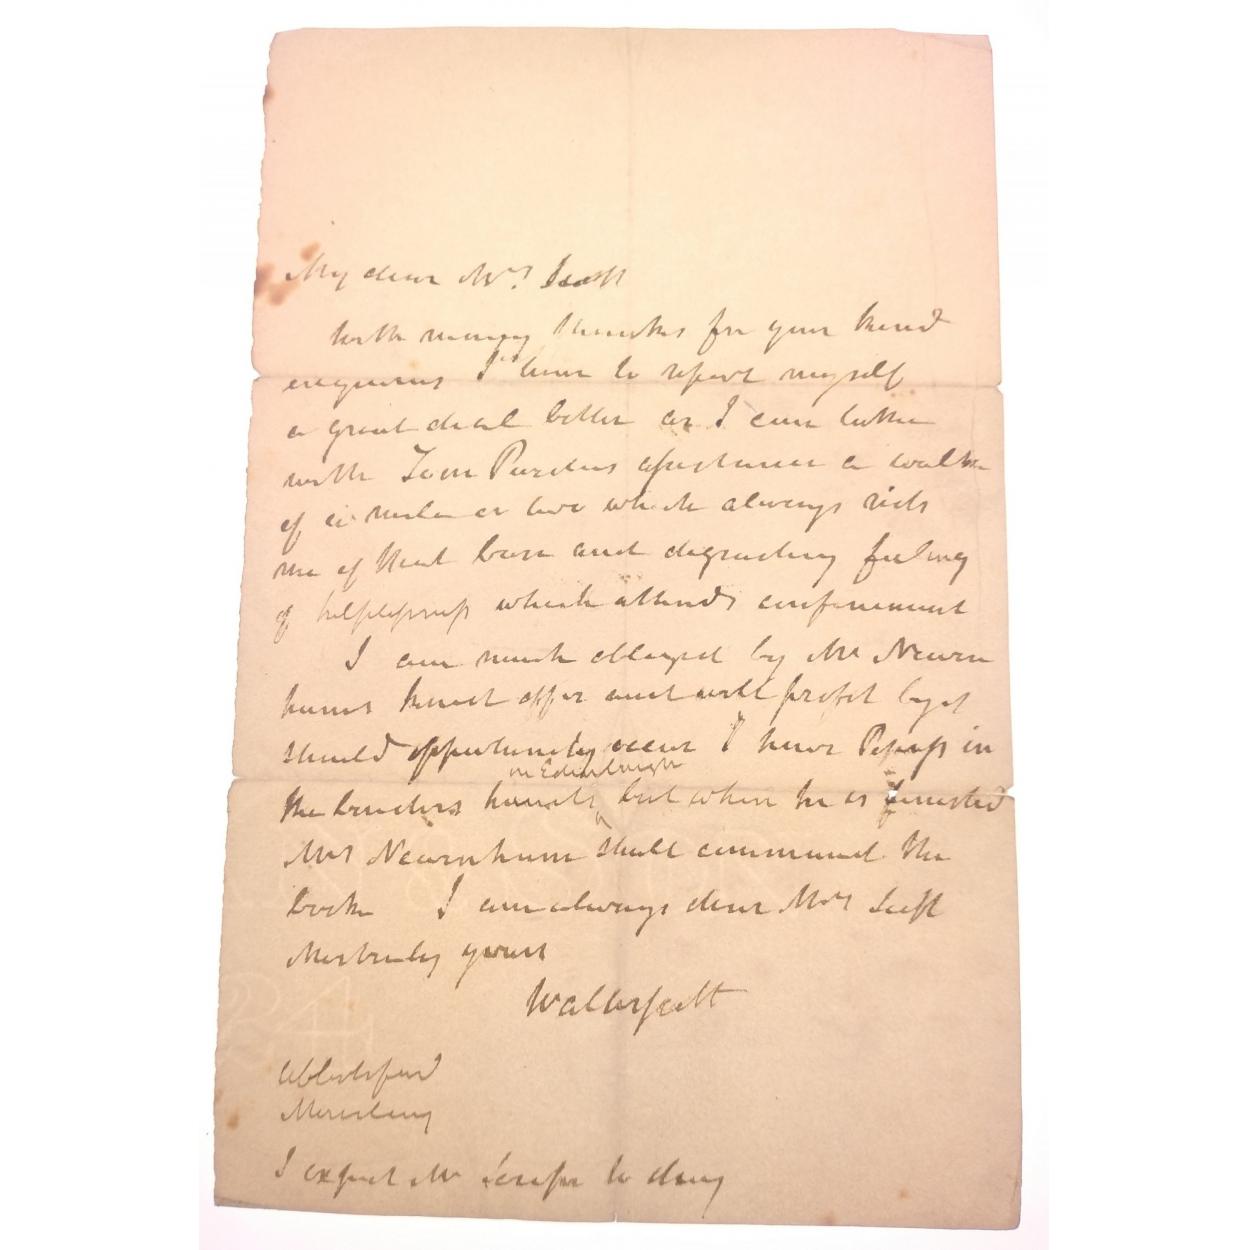 My dear Mrs. Scott
With many thanks for your kind
enquiries I have to report myself
a great deal better as I can take
with Tom Purdies assistance a walk
of a mile or two which always rids
me of that base and degrading feeling
of helplessness which attends confinement
I am much obliged by Mr Newn
hams kind offer and will profit by it
should opportunity occur I have Pepys in
the binders hands in Edinburgh but when he is finished
Mrs Newnham shall command the
book I am always dear Mrs Scott
Most truly yours
Walter Scott
Abbotsford
Monday
I expect Mr to day
24